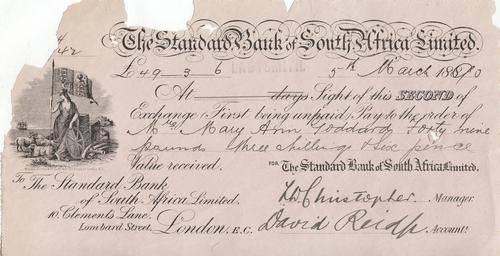 4
42
The Standard Bank of South Africa Limited.
£49 3 6 LADYSMITH 5th March 1880
At days Sight of this SECOND of
Exchange (First being unpaid) Pay to the order of
Mrs Mary Ann Goddard Forty nine
pounds three shillings & six pence
Value received. FOR The Standard Bank of South Africa Limited.
To The Standard Bank
of South Africa, Limited.
10, Clements Lane.
Lombard Street, London, E.C.
Christopher. Manager.
David Reid Account!